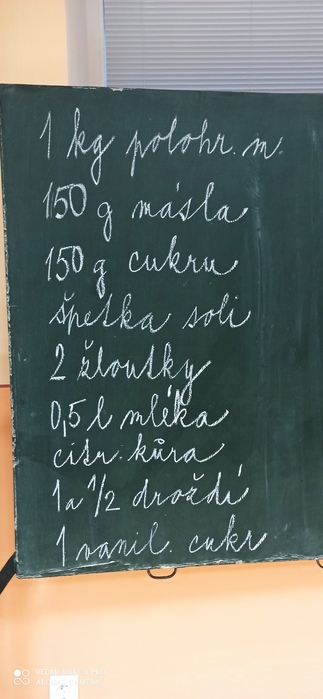 1 kg polohr. m.
150 g másla
150 g cukru
špetka soli
2 žloutky
0,5 l mléka
citr. kůra
1 a 1/2 droždí
1 vanil. cukr